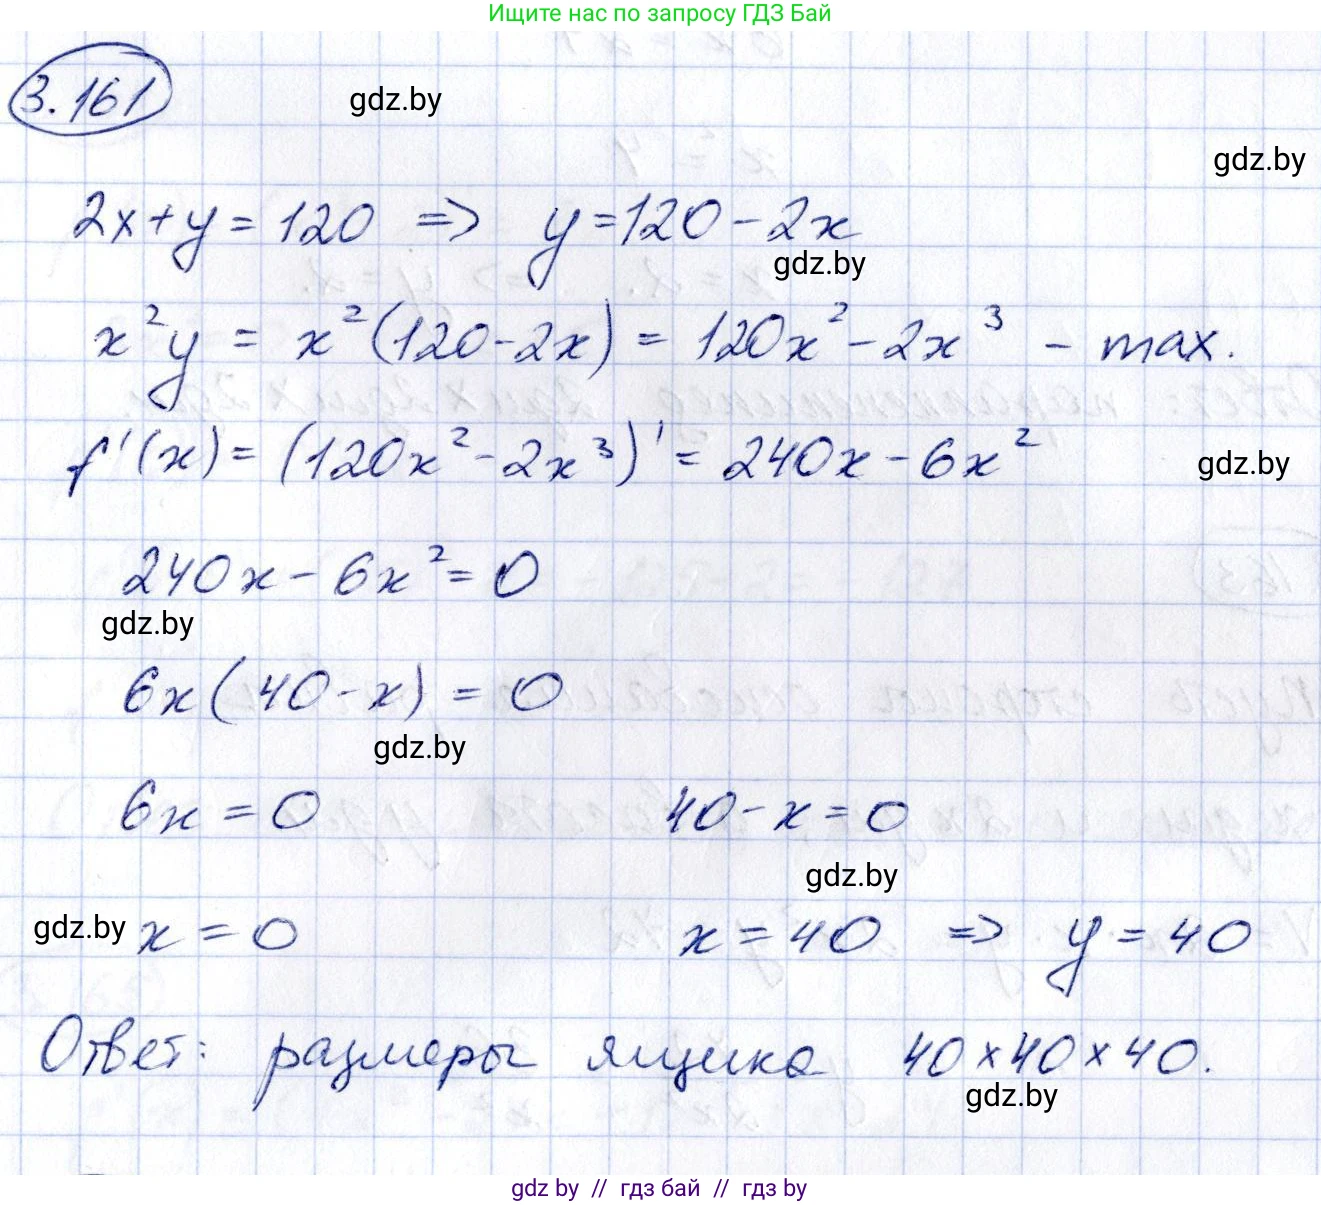 Ищите нас по запросу ГДЗ Бай
3.161
gdz.by
gdz.by
2x+y=120 => y=120-2x
gdz.by
x²y = x²(120-2x) = 120x²-2x³ - max.
f'(x) = (120x²-2x³)' = 240x-6x²
gdz.by
240x-6x²=0
gdz.by
6x(40-x)=0
gdz.by
6x=0 40-x=0
gdz.by
gdz.by x=0 x=40 => y=40
Ответ: размеры ящика 40×40×40.
gdz.by
gdz by // гдз бай // гдз by